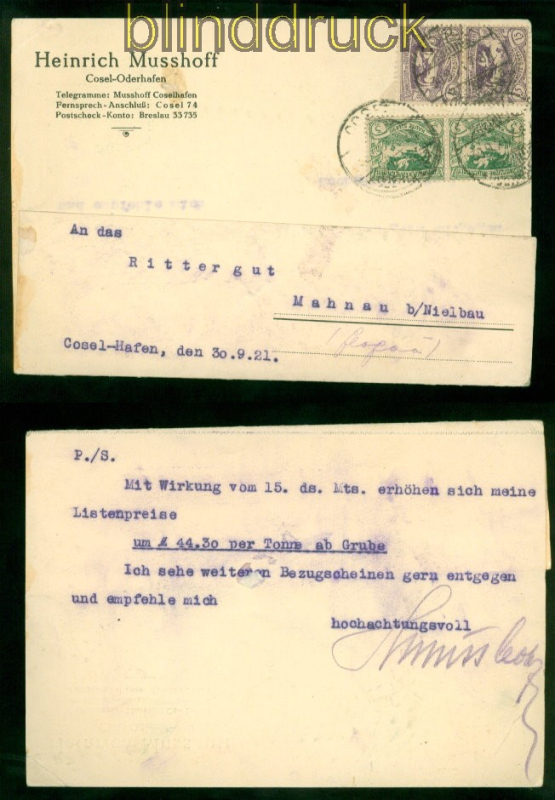 blinddruck
Heinrich Musshoff
Cosel-Oderhafen
Telegramme: Musshoff Coselhafen
Fernsprech-Anschluß: Cosel 74
Postscheck-Konto: Breslau 33735
COSEL
An das
Rittergut
Mahnau b/Nielbau
Cosel-Hafen, den 30.9.21.
P./S.
Mit Wirkung vom 15. ds. Mts. erhöhen sich meine
Listenpreise
um M 44.30 per Tonne ab Grube
Ich sehe weiteren Bezugscheinen gern entgegen
und empfehle mich
hochachtungsvoll